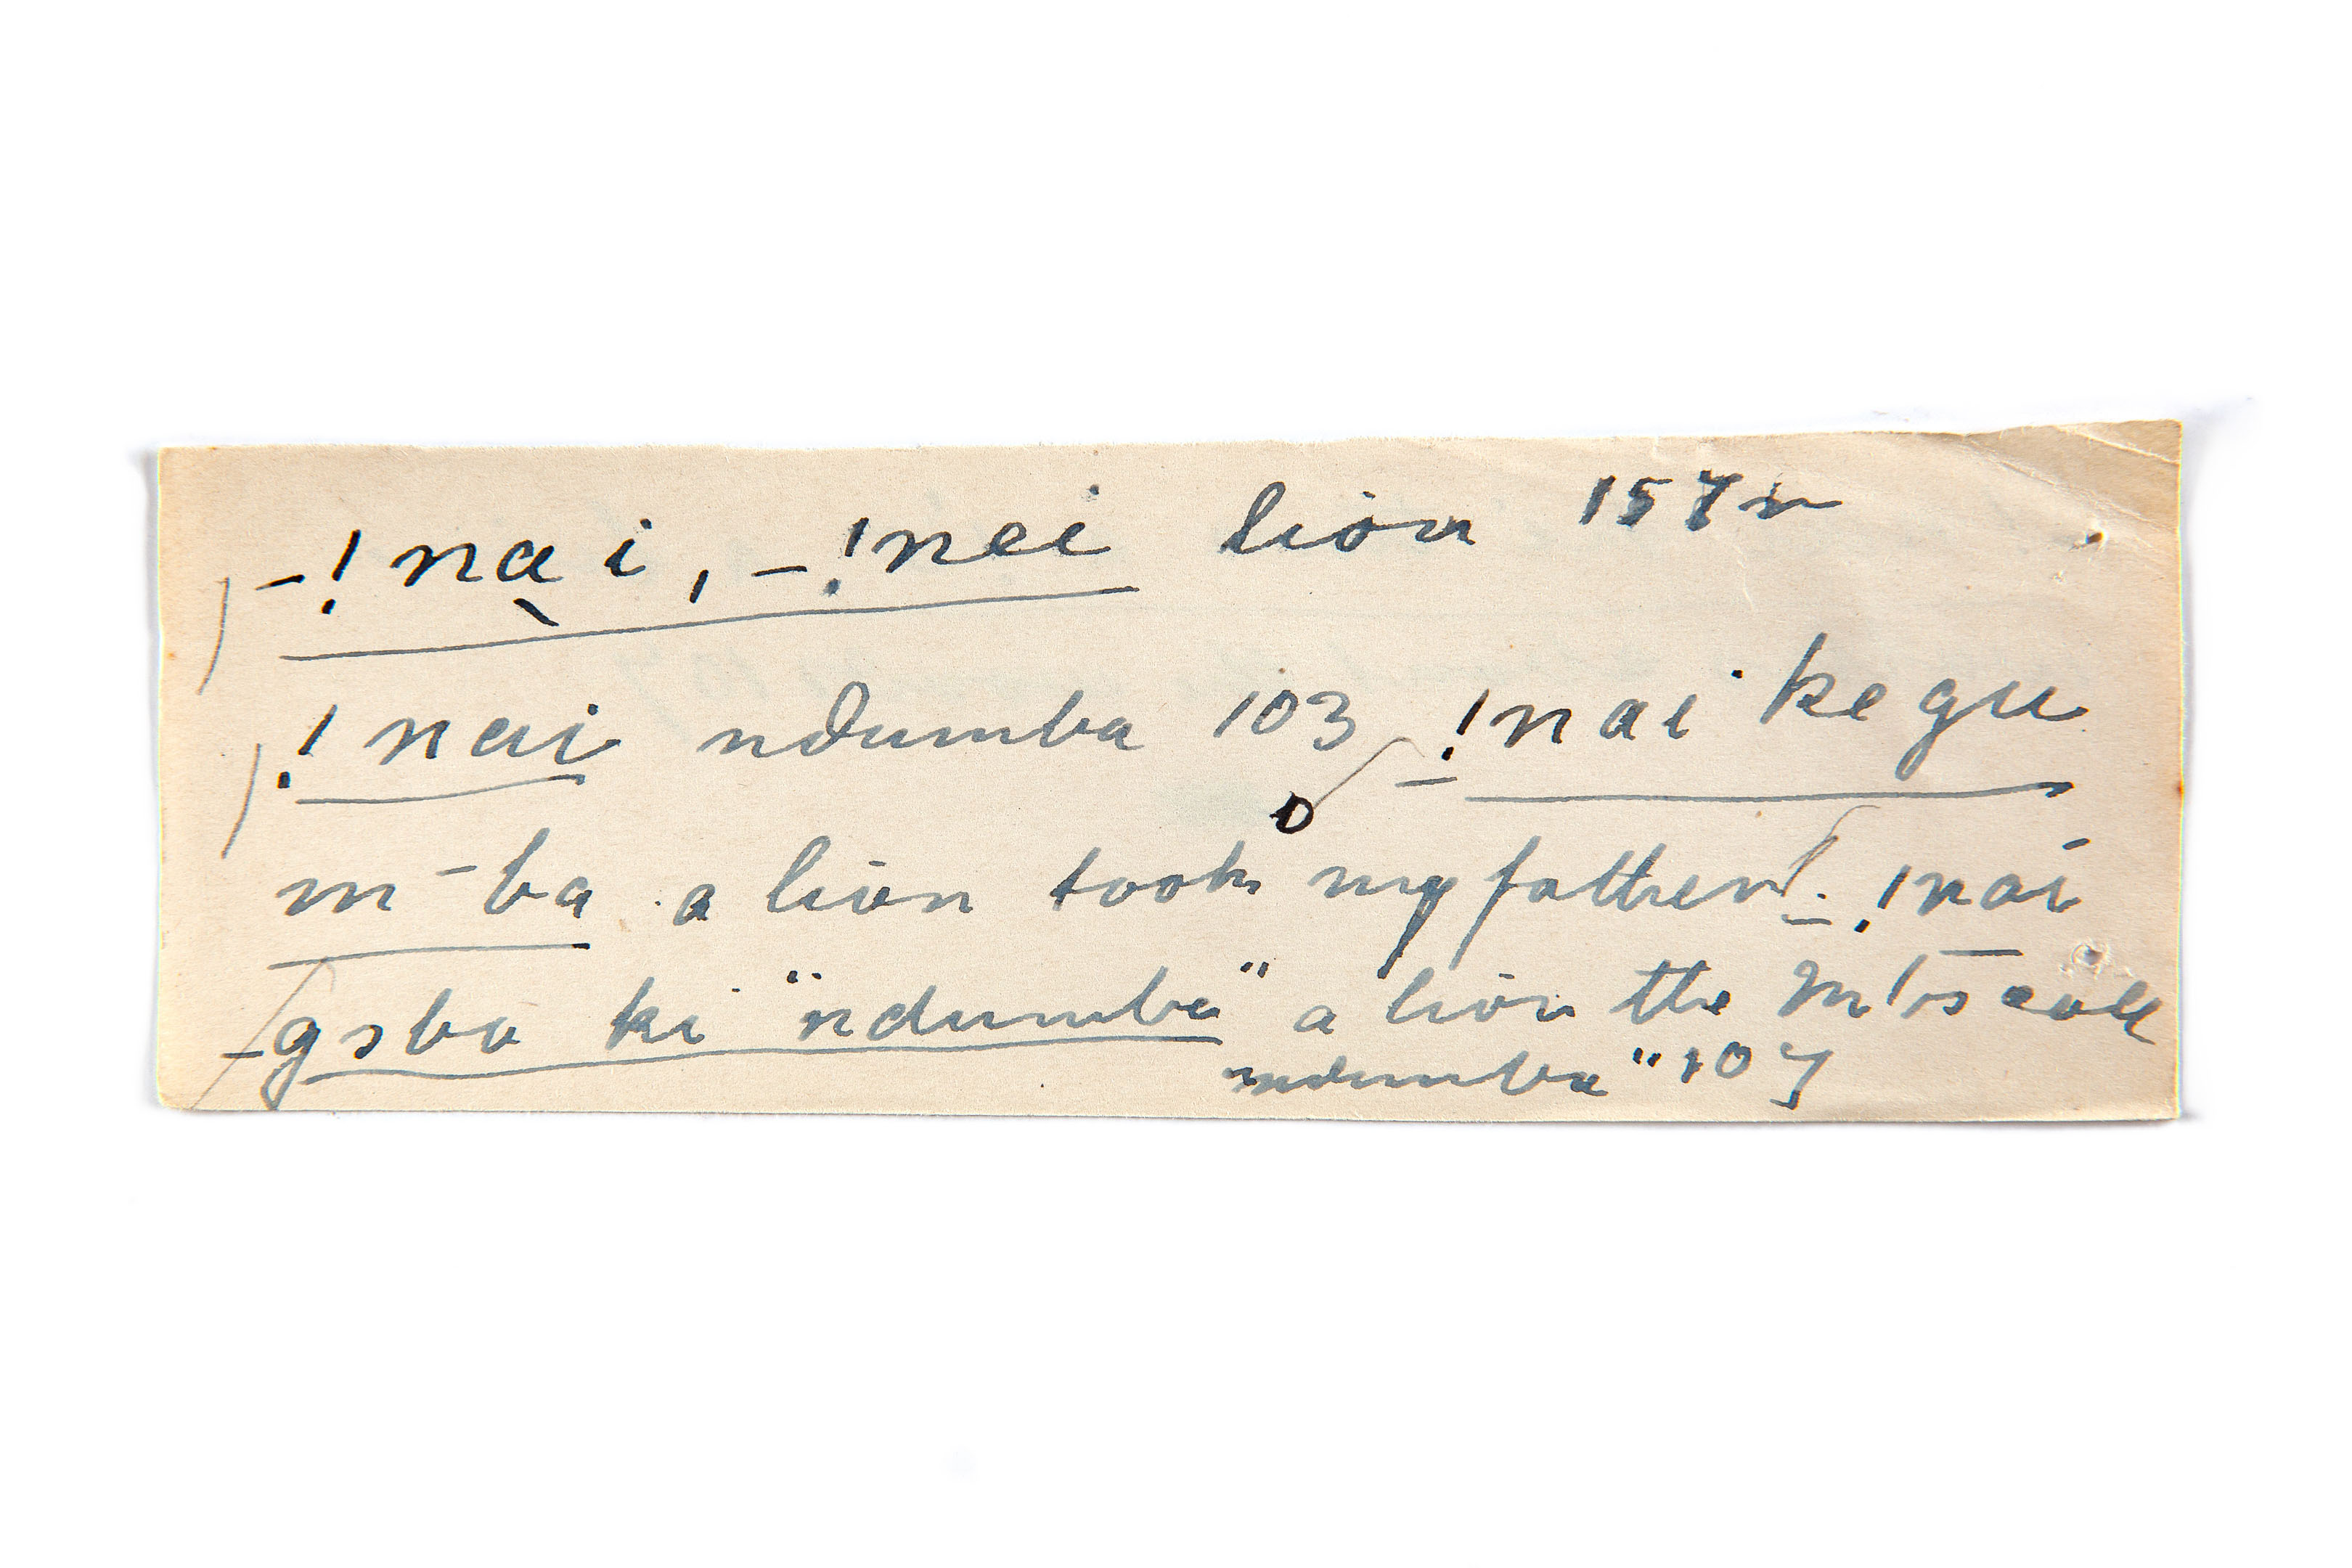 _!na̱i, _!nei lion 157r
!nai ndumba 103 _!nai kegu
m-ba a lion took my father _!nai
_gǝbo ki "ndumba" a lion the M!ō call
ndumba" 107